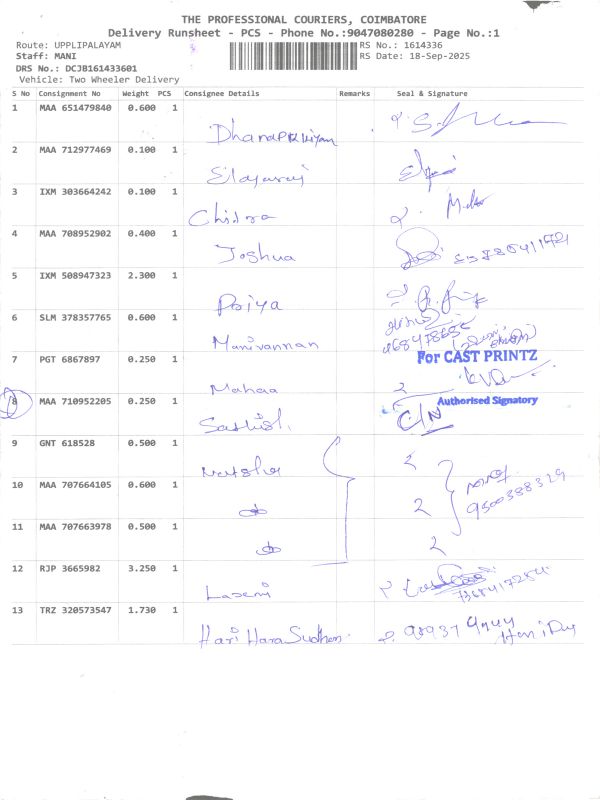 THE PROFESSIONAL COURIERS, COIMBATORE
Delivery Runsheet - PCS - Phone No.:9047080280 - Page No.:1
Route: UPPLIPALAYAM
Staff: MANI
DRS No.: DCJB161433601
Vehicle: Two Wheeler Delivery
RS No.: 1614336
RS Date: 18-Sep-2025
S No Consignment No Weight PCS Consignee Details Remarks Seal & Signature
1 MAA 651479840 0.600 1
2 MAA 712977469 0.100 1 Elayaraj
3 IXM 303664242 0.100 1 Chitra
4 MAA 708952902 0.400 1 Joshua
5 IXM 508947323 2.300 1 Priya
6 SLM 378357765 0.600 1 Manivannan
7 PGT 6867897 0.250 1 Mahaa
For CAST PRINTZ
8 MAA 710952205 0.250 1 Sathish. C/N
Authorised Signatory
9 GNT 618528 0.500 1
10 MAA 707664105 0.600 1
9500388329
11 MAA 707663978 0.500 1
12 RJP 3665982 3.250 1 Laxmi
13 TRZ 320573547 1.730 1 Hari Hara Sudhan.